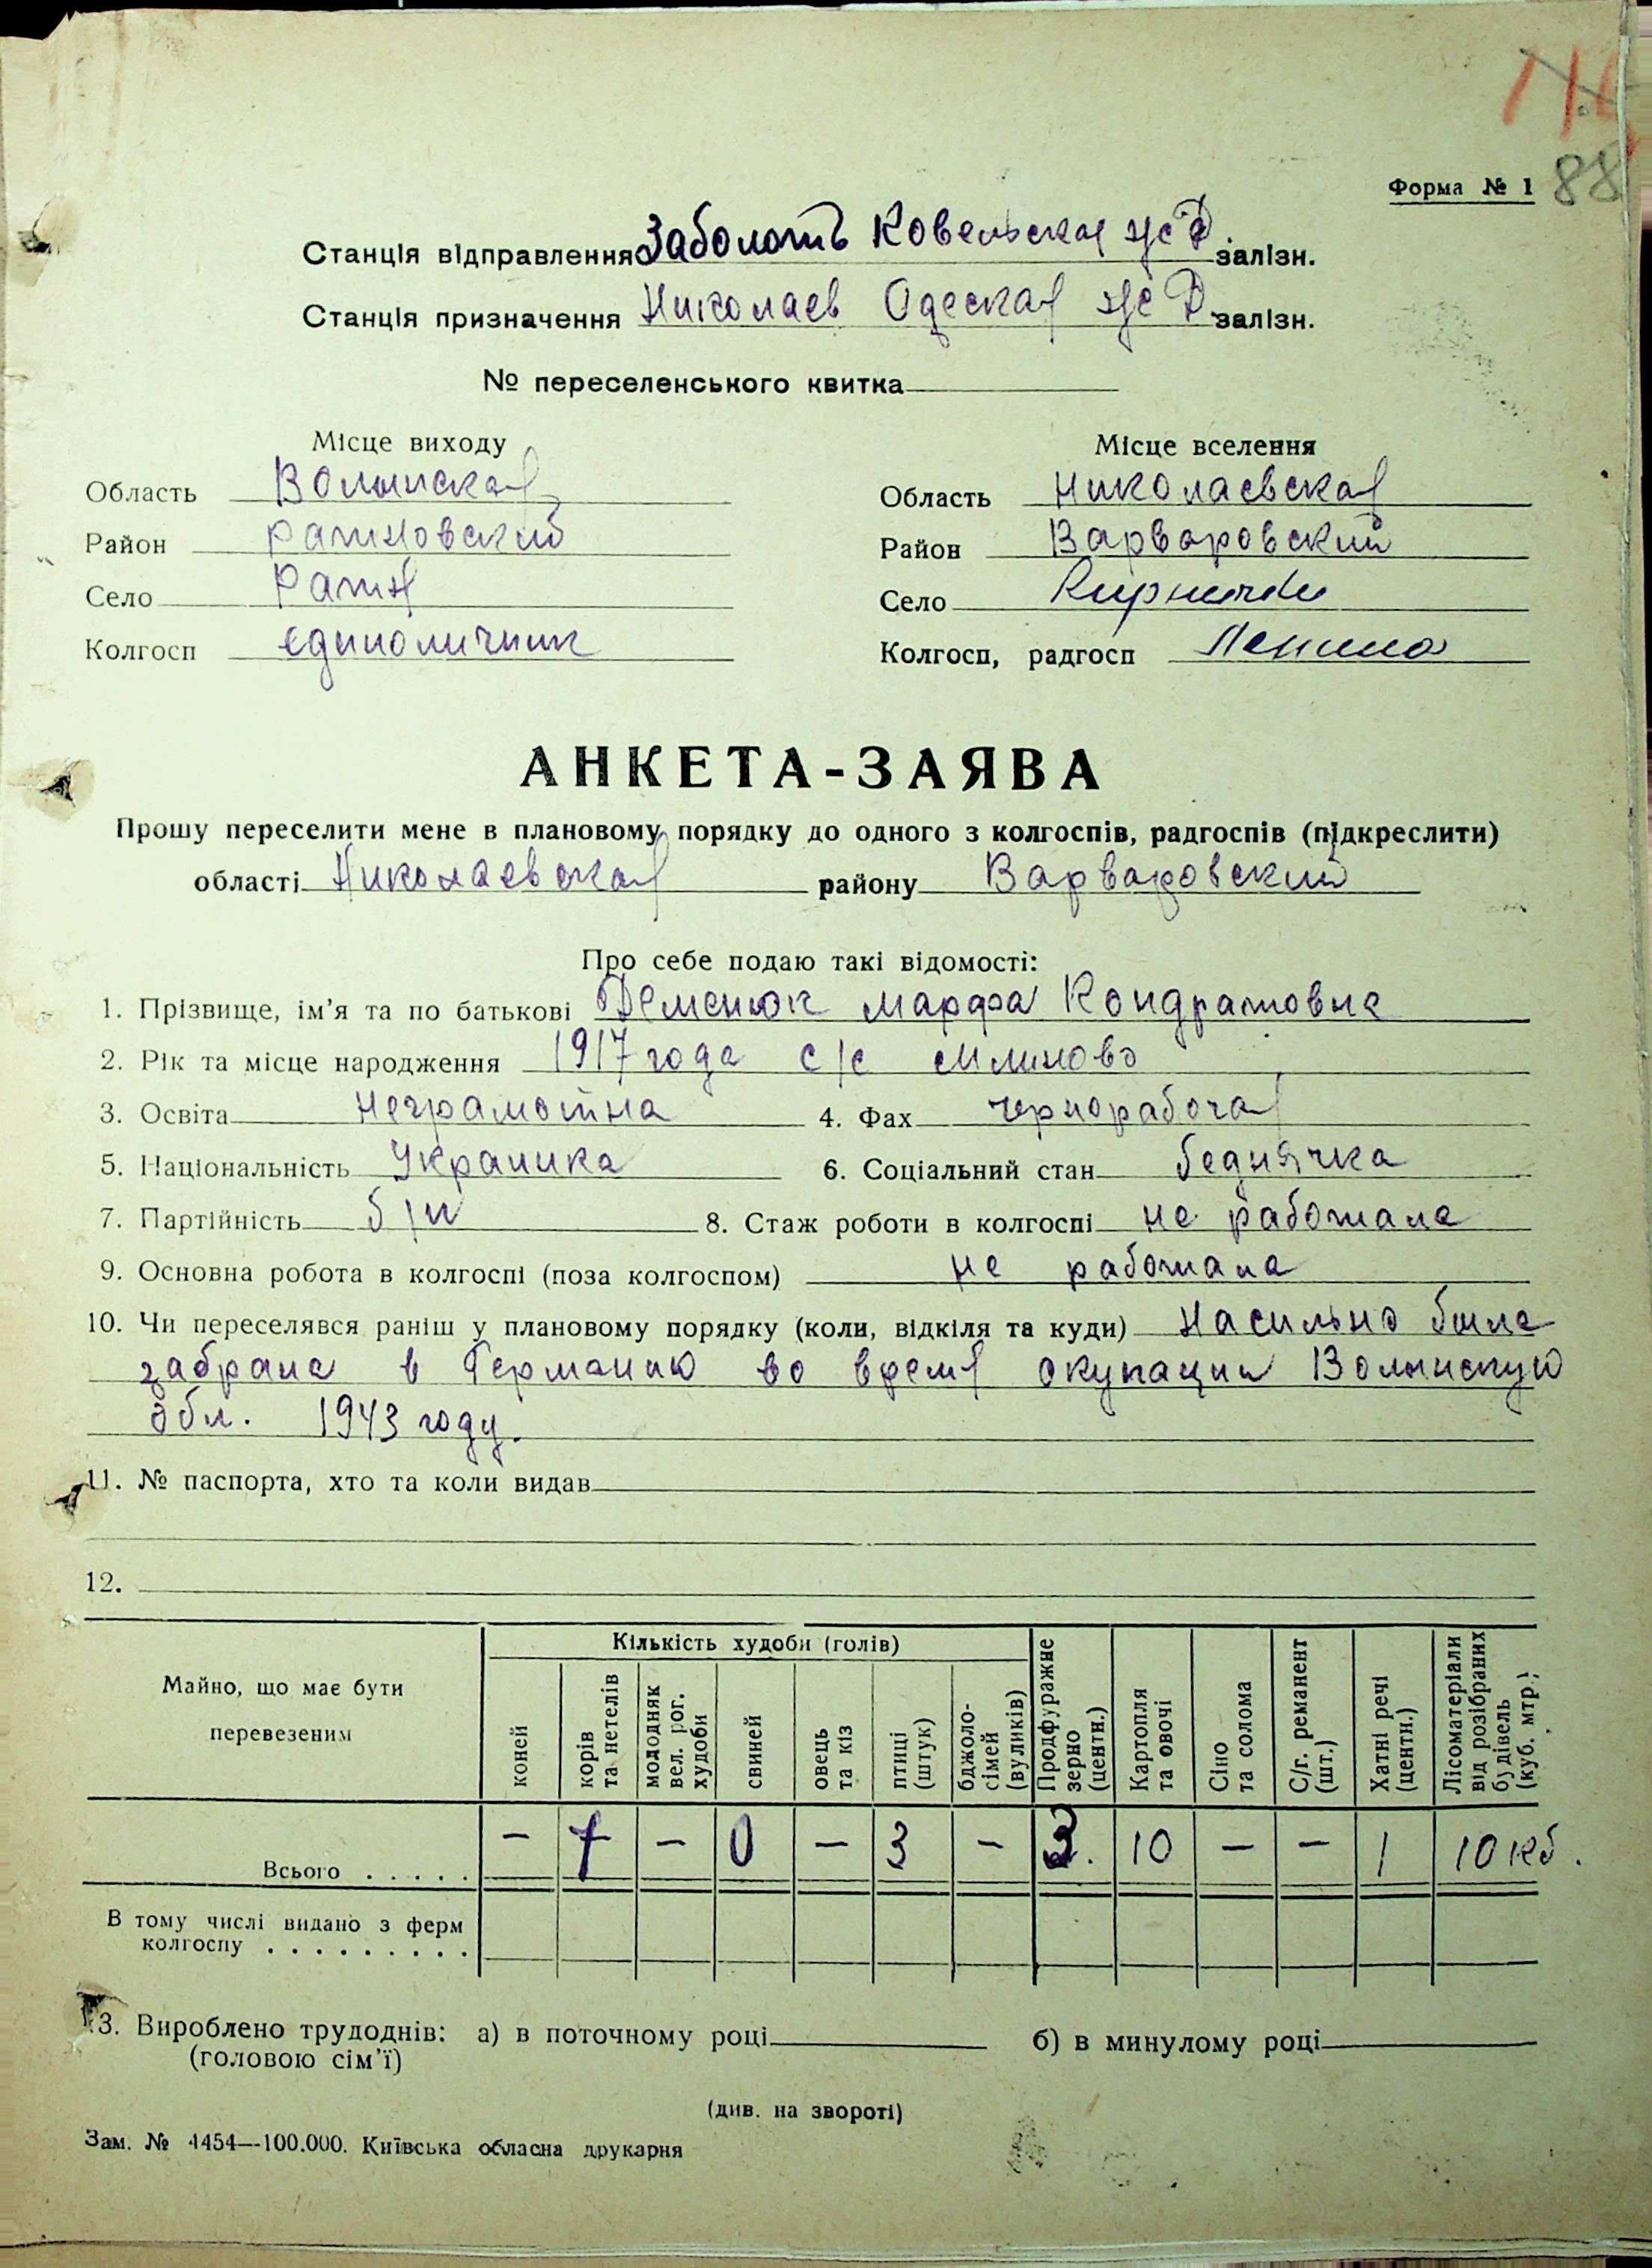 88
Форма № 1
Станція відправлення Заболоть Ковельская ж Д. залізн.
Станція призначення Николаев Одеская ж Д. залізн.
№ переселенського квитка
Місце виходу Місце вселення
Область Волынская Область Николаевская
Район Ратновский Район Варваровский
Село Ратня Село
Колгосп єдиноличник Колгосп, радгосп Ленина
АНКЕТА-ЗАЯВА
Прошу переселити мене в плановому порядку до одного з колгоспів, радгоспів (підкреслити)
області Николаевская району Варваровский
Про себе подаю такі відомості:
1. Прізвище, ім'я та по батькові Деменюк Марфа Кондратовна
2. Рік та місце народження 1917 года с/с Млиново
3. Освіта неграмотна 4. Фах чернорабочая
5. Національність Украинка 6. Соціальний стан беднячка
7. Партійність б/п 8. Стаж роботи в колгоспі не работала
9. Основна робота в колгоспі (поза колгоспом) не работала
10. Чи переселявся раніш у плановому порядку (коли, відкіля та куди) Насильно была
забрана в Германию во время окупации Волынскую
обл. 1943 году.
11. № паспорта, хто та коли видав
12.
Майно, що має бути перевезеним
Кількість худоби (голів)
коней
корів та нетелів
молодняк вел. рог. худоби
свиней
овець та кіз
птиці (штук)
бджоло-сімей (вуликів)
Продфуражне зерно (центн.)
Картопля та овочі
Сіно та солома
С/г. реманент (шт.)
Хатні речі (центн.)
Лісоматеріали від розібраних будівель (куб. мтр.)
Всього . . . . . – – 0 – 3 – 3. 10 – – 1 10 кб.
В тому числі видано з ферм
колгоспу . . . . . . . . .
13. Вироблено трудоднів: а) в поточному році б) в минулому році
(головою сім'ї)
(див. на звороті)
Зам. № 4454—100.000. Київська обласна друкарня